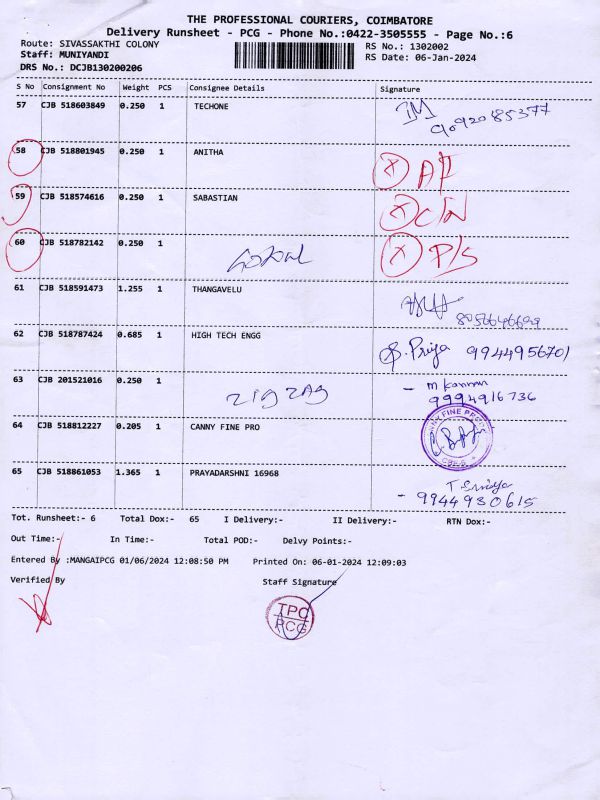 THE PROFESSIONAL COURIERS, COIMBATORE
Delivery Runsheet - PCG - Phone No.:0422-3505555 - Page No.:6
Route: SIVASSAKTHI COLONY RS No.: 1302002
Staff: MUNIYANDI RS Date: 06-Jan-2024
DRS No.: DCJB130200206
S No Consignment No Weight PCS Consignee Details Signature
57 CJB 518603849 0.250 1 TECHONE
9092085377
58 CJB 518801945 0.250 1 ANITHA
59 CJB 518574616 0.250 1 SABASTIAN
60 CJB 518782142 0.250 1 P/S
61 CJB 518591473 1.255 1 THANGAVELU
62 CJB 518787424 0.685 1 HIGH TECH ENGG S. Priya 9944956701
63 CJB 201521016 0.250 1 ZIGZAG - M Kannan
9994916736
64 CJB 518812227 0.205 1 CANNY FINE PRO
65 CJB 518861053 1.365 1 PRAYADARSHNI 16968
- 9944930615
Tot. Runsheet:- 6 Total Dox:- 65 I Delivery:- II Delivery:- RTN Dox:-
Out Time:- In Time:- Total POD:- Delvy Points:-
Entered By :MANGAIPCG 01/06/2024 12:08:50 PM Printed On: 06-01-2024 12:09:03
Verified By Staff Signature
TPC
PCG